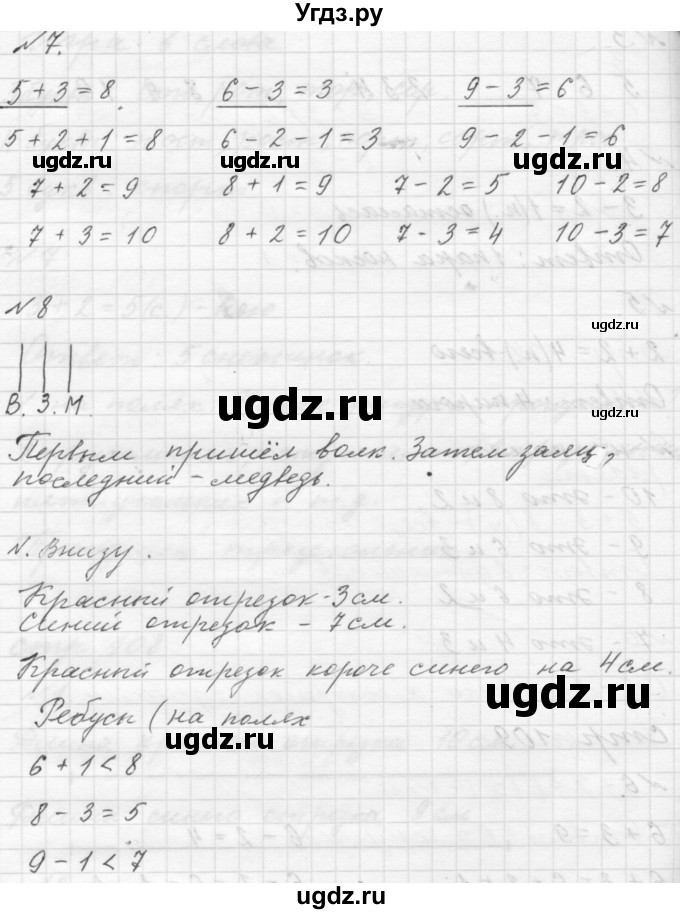 Угдз.ру
№7.
5 + 3 = 8. 6 - 3 = 3 9 - 3 = 6
5 + 2 + 1 = 8 6 - 2 - 1 = 3 9 - 2 - 1 = 6
ugdz.ru ugdz.ru ugdz.ru
7 + 2 = 9 8 + 1 = 9 7 - 2 = 5 10 - 2 = 8
7 + 3 = 10 8 + 2 = 10 7 - 3 = 4 10 - 3 = 7
№8
ugdz.ru
В. З. М.
ugdz.ru
ugdz.ru
Первым пришёл волк. Затем заяц,
последний - медведь.
N. Внизу.
Красный отрезок - 3см.
Синий отрезок - 7см.
Красный отрезок короче синего на 4см.
ugdz.ru
Ребусы (на полях
ugdz.ru
6 + 1 < 8
8 - 3 = 5
9 - 1 < 7
ugdz.ru
ugdz.ru